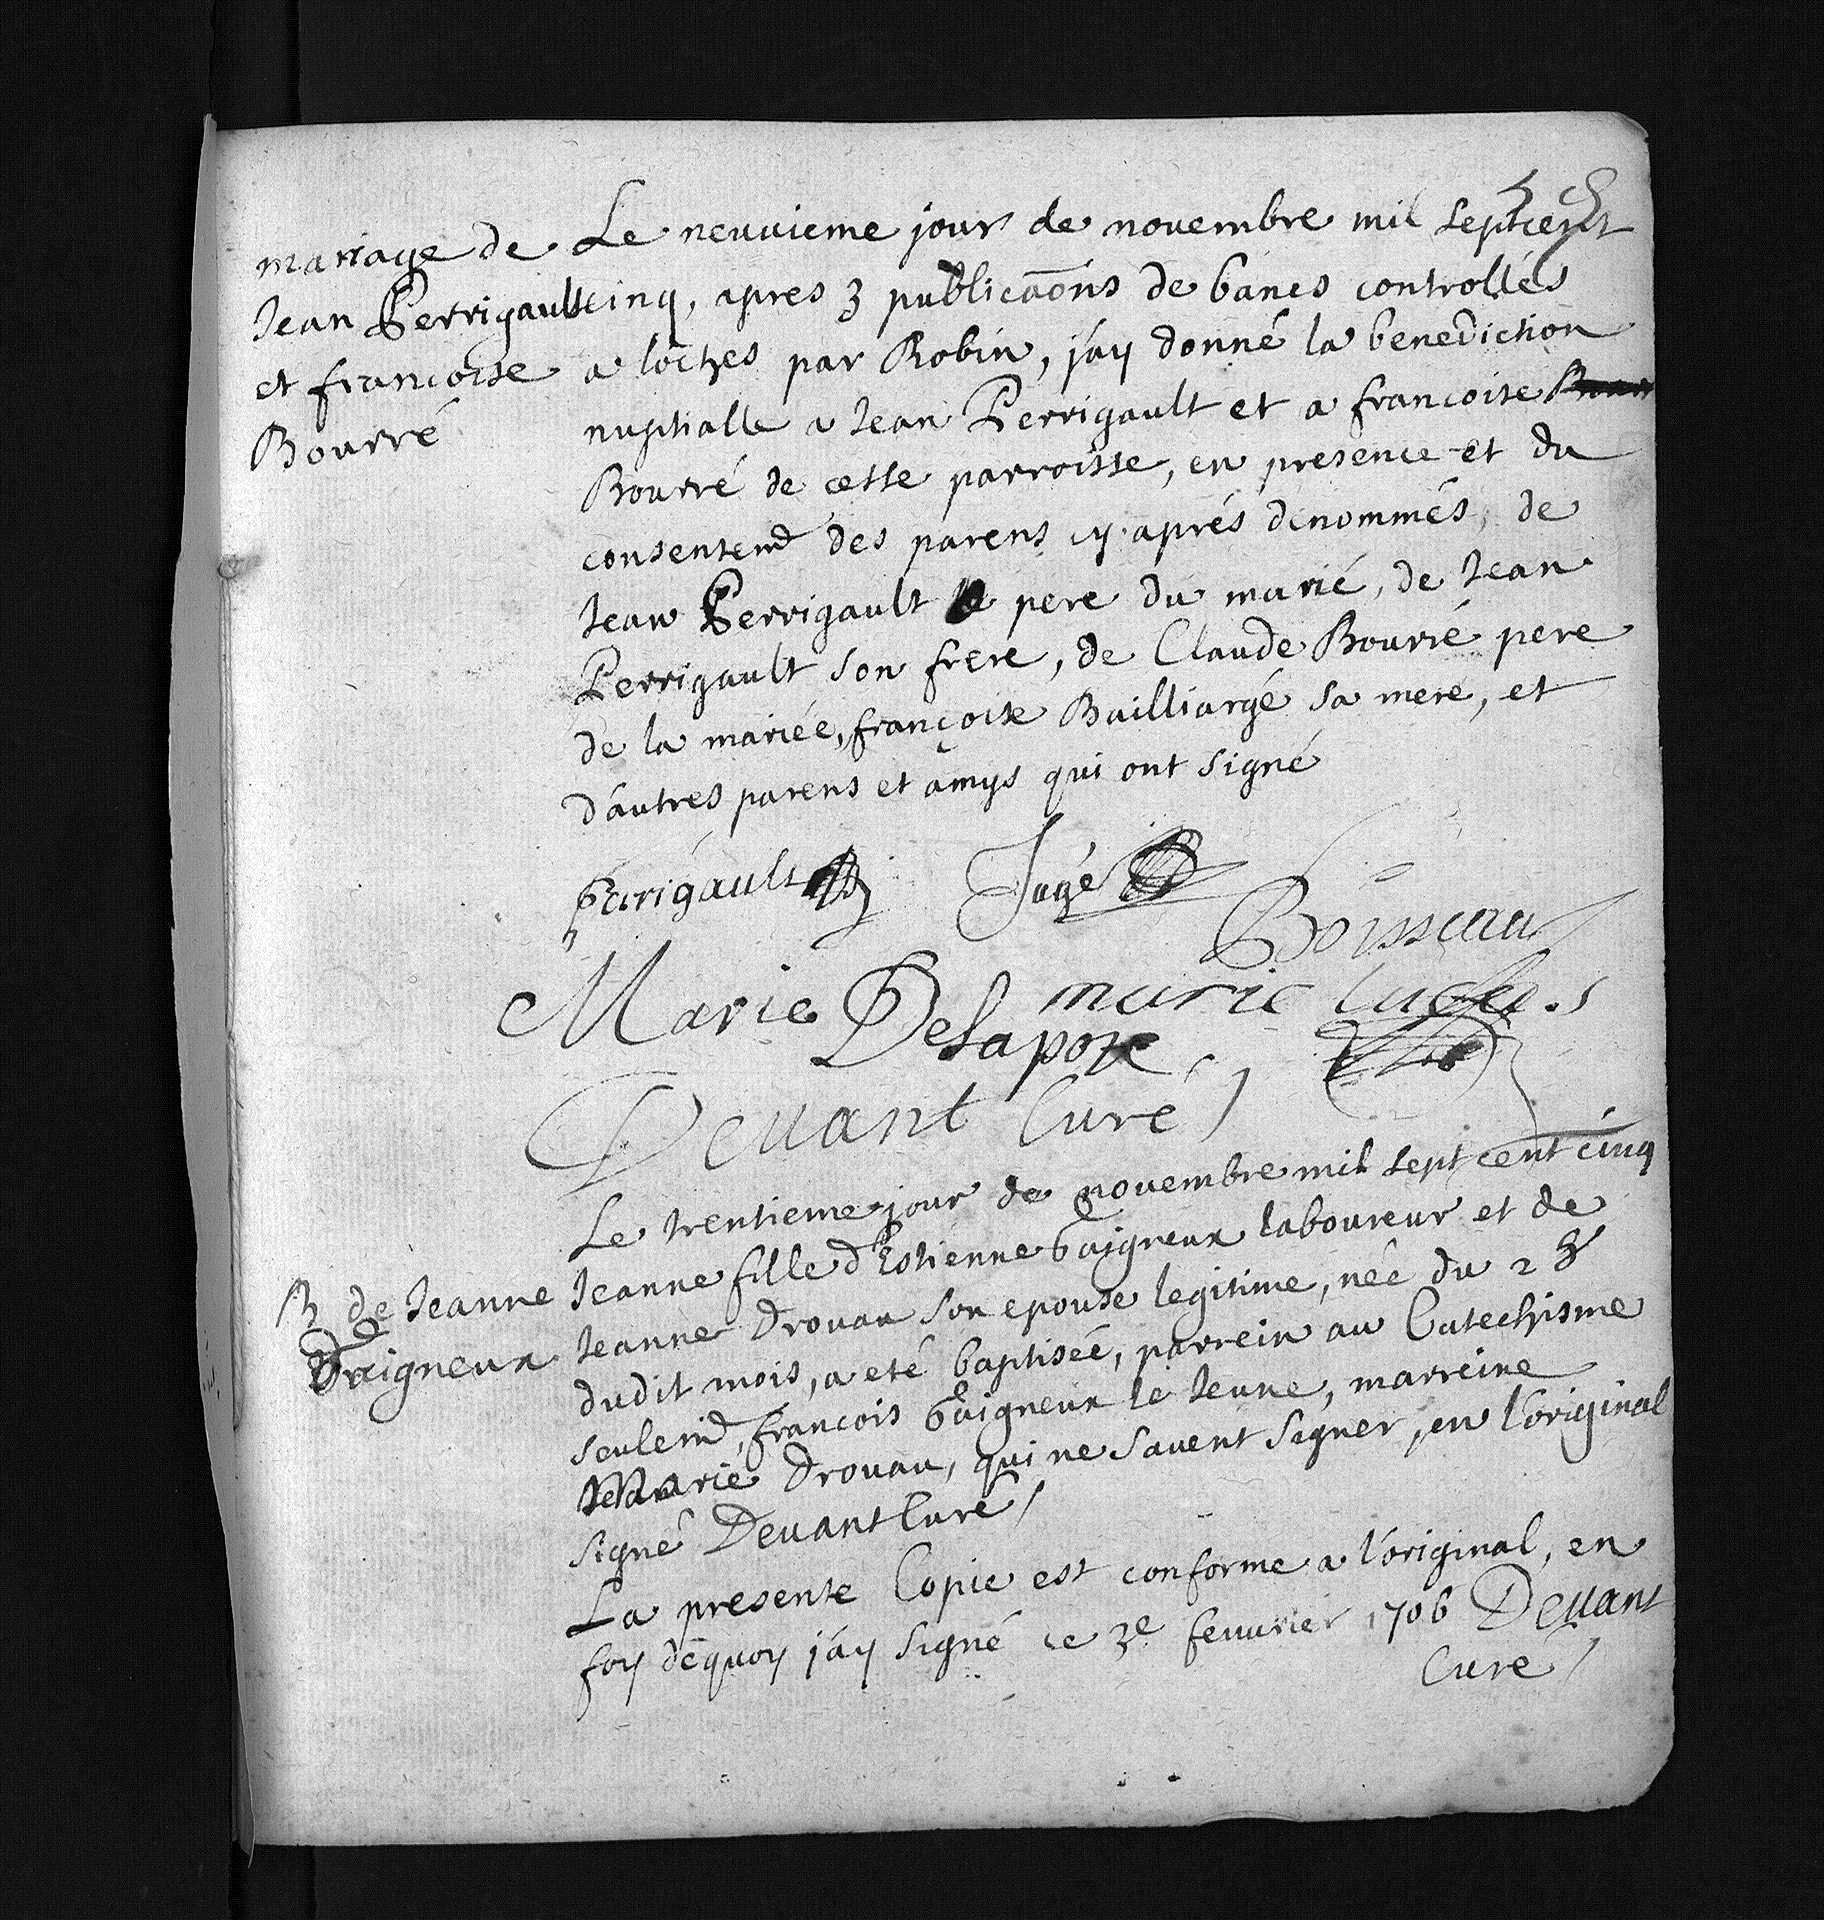 mariage de
Jean Perrigault
et francoise
Bourré
Le neuuieme jour de nouembre mil septcent
cinq, apres 3 publicaõns de bancs controllés
a loches par Robin, j'ay donné la benediction
nuptialle a Jean Perrigault et a francoise
Bourré de cette parroisse, en presence et du
consentemt des parens cy aprés denommés, de
Jean Perrigault pere du marié, de Jean
Perrigault son frere, de Claude Bourré pere
de la mariée, françoise Bailliargé sa mere, et
d'autres parens et amys qui ont signé
Perigault Jagé
Boisseau
Marie Delaporte marie
Deuant Curé
B de Jeanne
Gaigneux
Le trentieme jour de nouembre mil sept cent cinq
Jeanne fille d'Estienne Gaigneux laboureur et de
Jeanne Drouau son epouse legitime, née du 28
dudit mois, a eté baptisée, parrein au Catechisme
seulemt, francois Gaigneux le Jeune, marreine
Marie Drouau, qui ne sauent signer, en l'original
signé Deuant Curé
La presente Copie est conforme a l'original, en
foy dequoy j'ay signé ce 3e feuurier 1706 Deuant
Curé